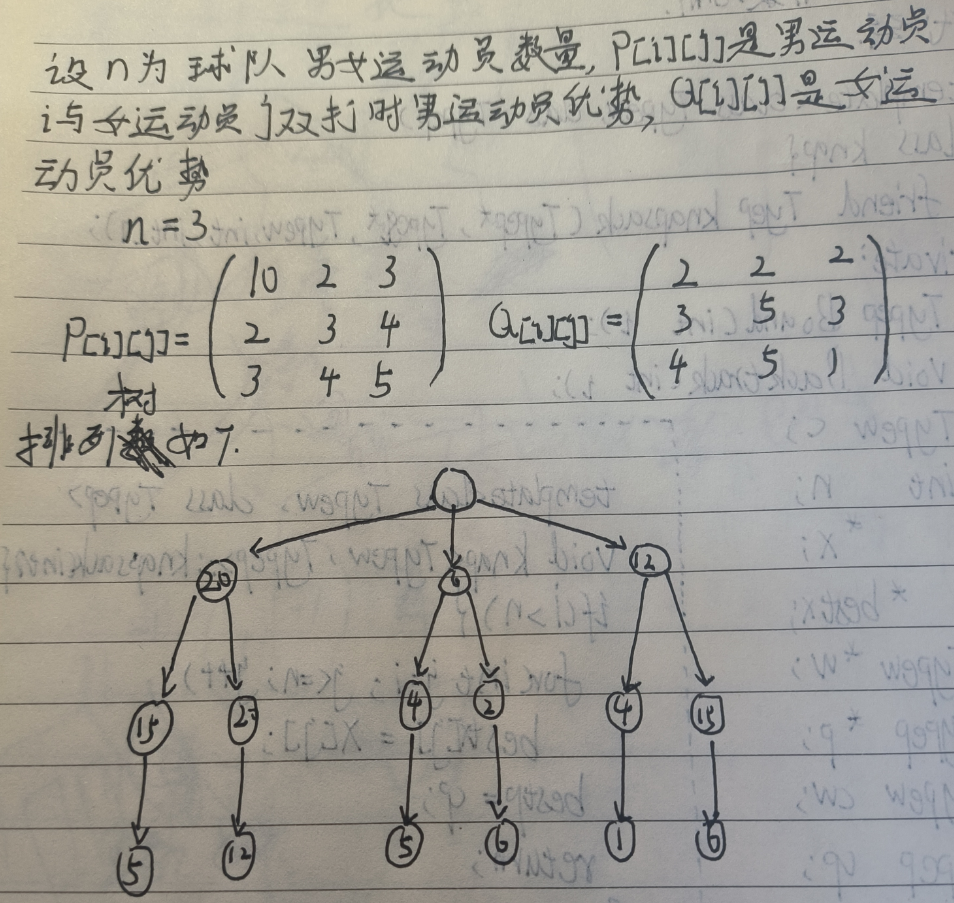 设n为球队男女运动员数量, P[i][j]是男运动员
i与女运动员j双打时男运动员优势, Q[i][j]是女运
动员优势
n=3
P[i][j]= 10 2 3 Q[i][j]= 2 2 2
2 3 4 3 5 3
3 4 5 4 5 1
树
排列 如下.
20 6 12
15 4 2 4 15
5 12 5 6 1 6